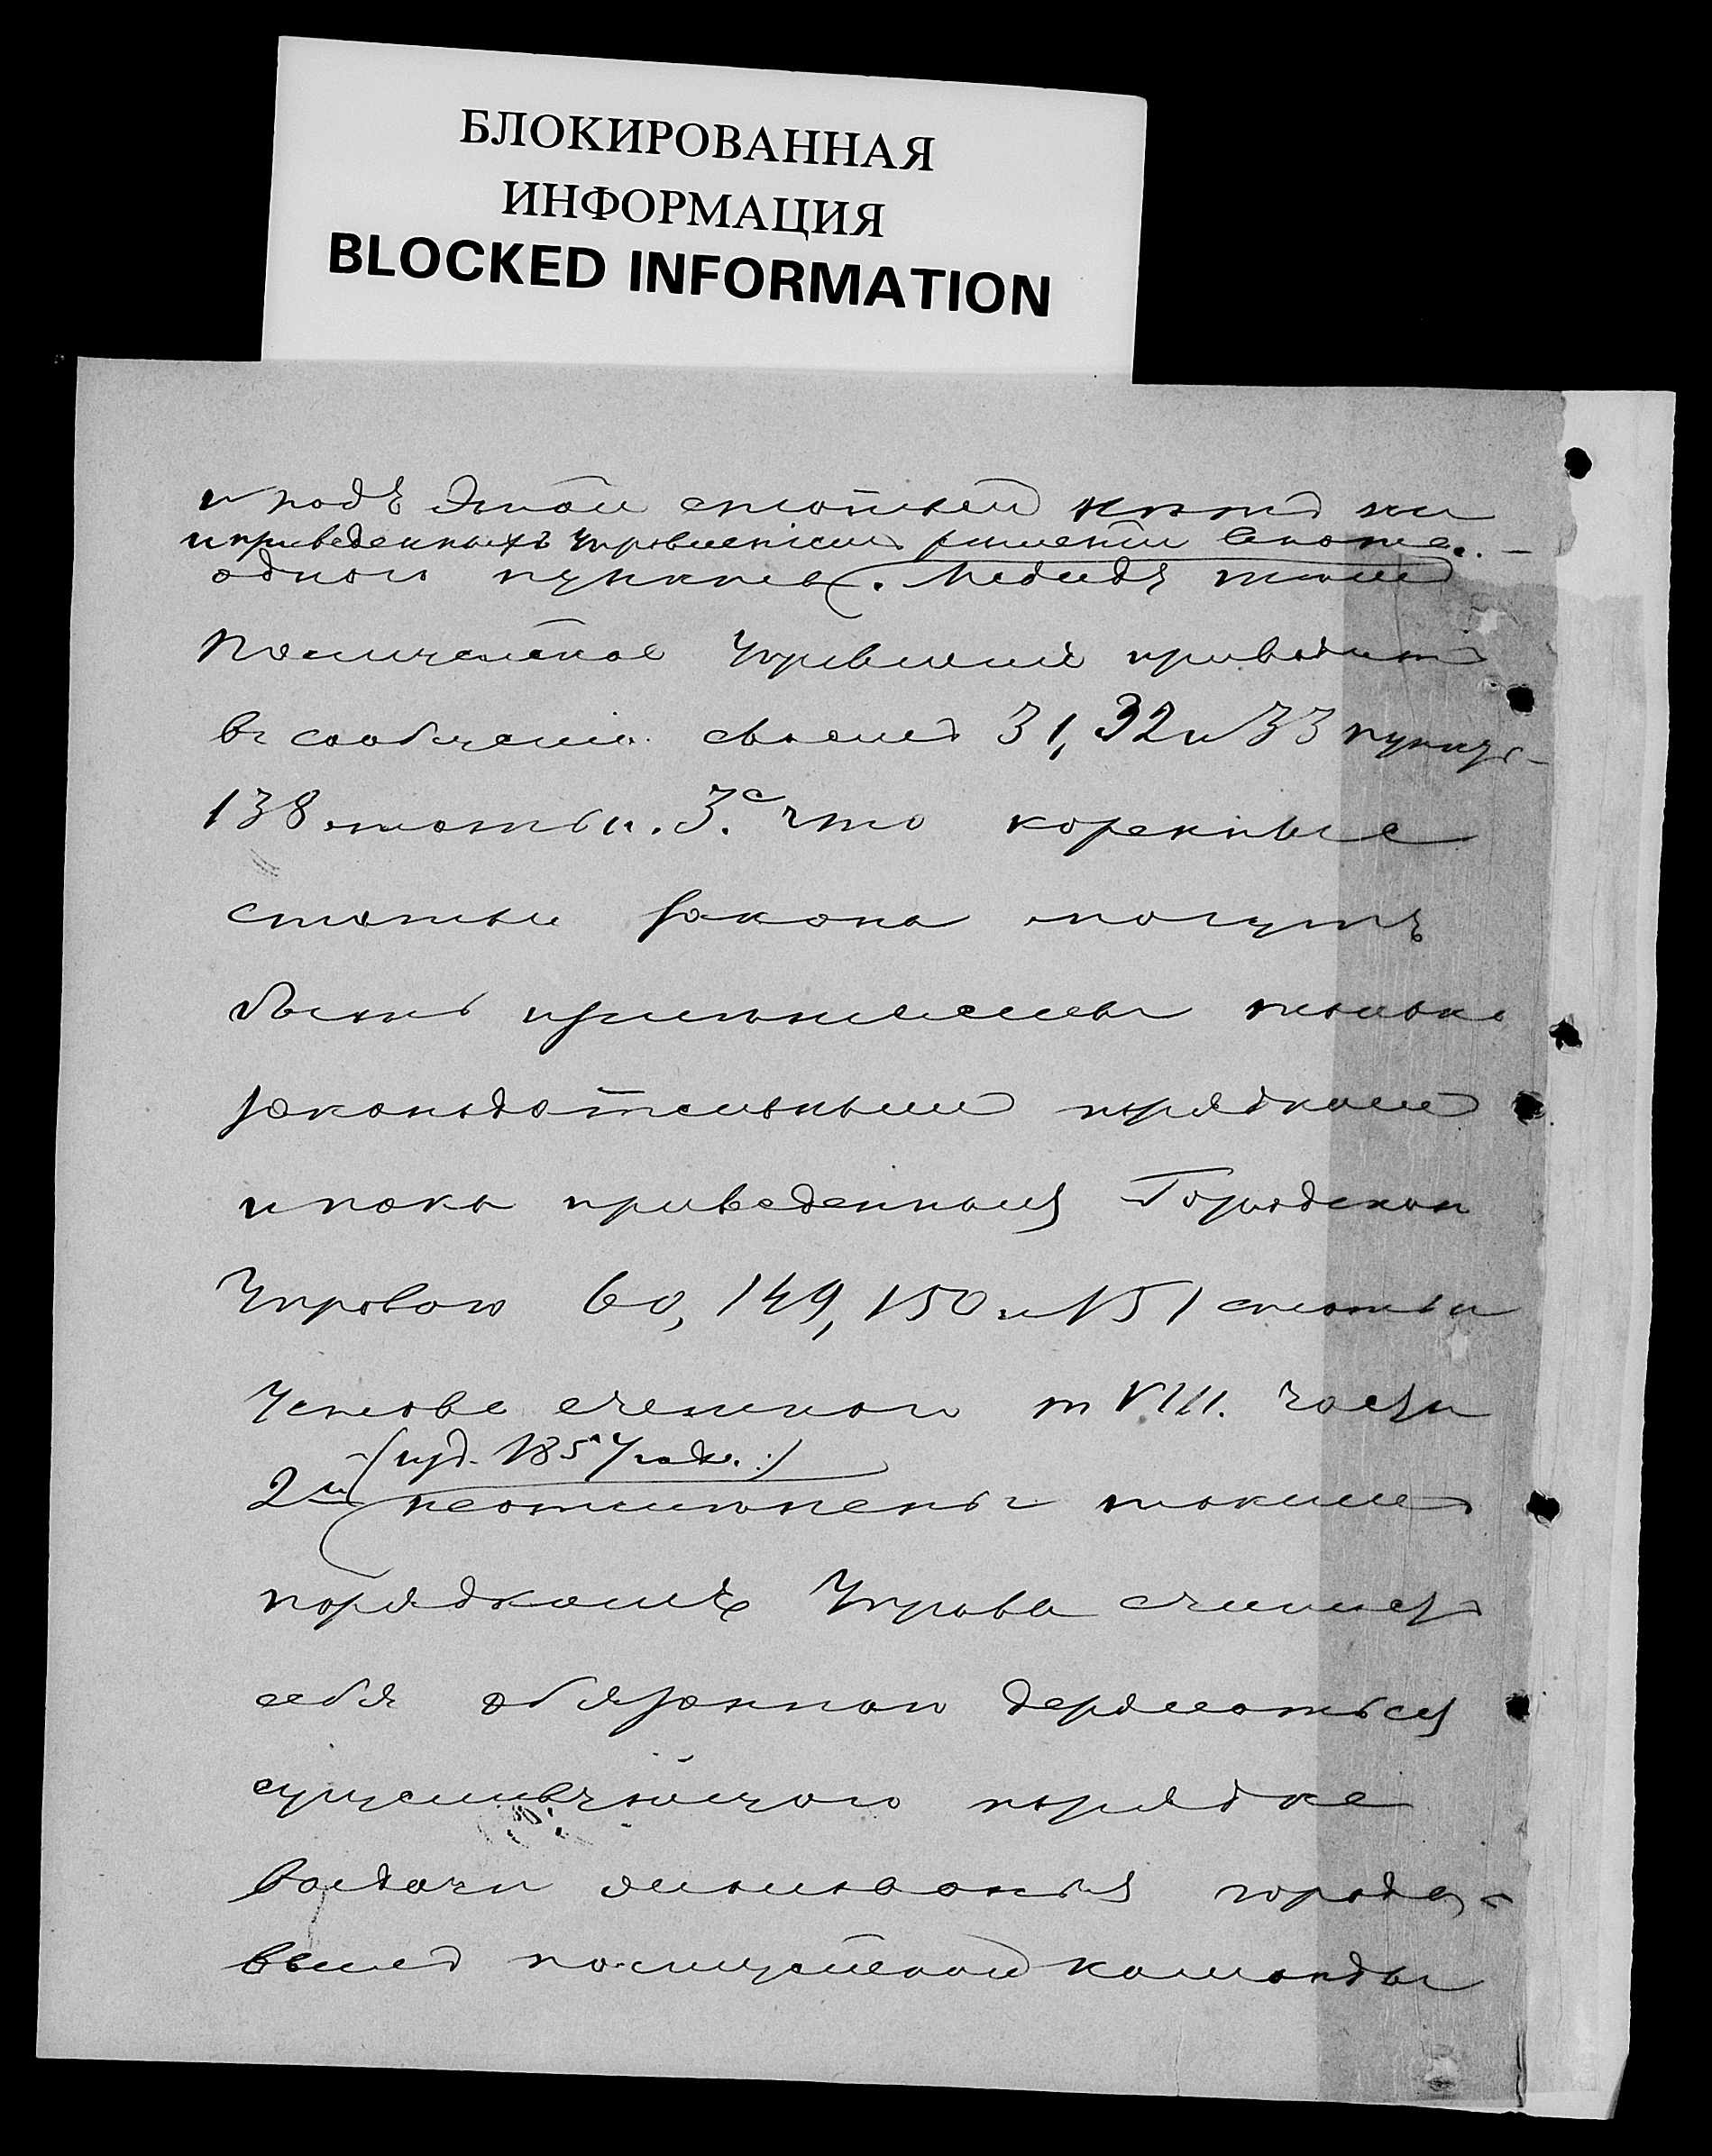 БЛОКИРОВАННАЯ
ИНФОРМАЦИЯ
BLOCKED INFORMATION
и подъ этой статьей нѣтъ ни
и приведенныхъ Управленіемъ рѣшеній Сената.
одного пункта.
Полицейское Управленіе приводитъ
въ сообщеніи своемъ 31, 32 и 33 пункты
138 статьи. 3. что коренные
статьи закона могутъ
быть измѣняемы только
законодательнымъ порядкомъ
и пока приведенныя Городскою
Управою 60, 149, 150 и 151 статьи
Устава счетнаго т VIII. части
(изд. 1857 года:)
2й неотмѣнены такимъ
порядкомъ Управа считаетъ
себя обязанной держаться
существующаго порядка
выдачи жалованья городо-
вымъ полицейской команды